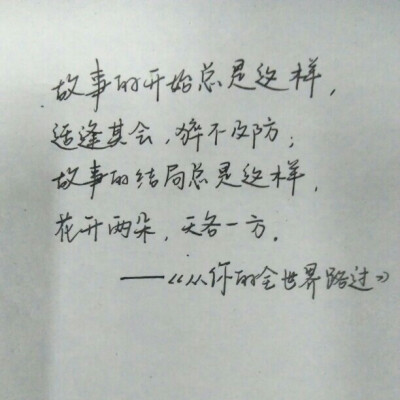 故事的开始总是这样，
适逢其会，猝不及防；
故事的结局总是这样，
花开两朵，天各一方。
——《从你的全世界路过》